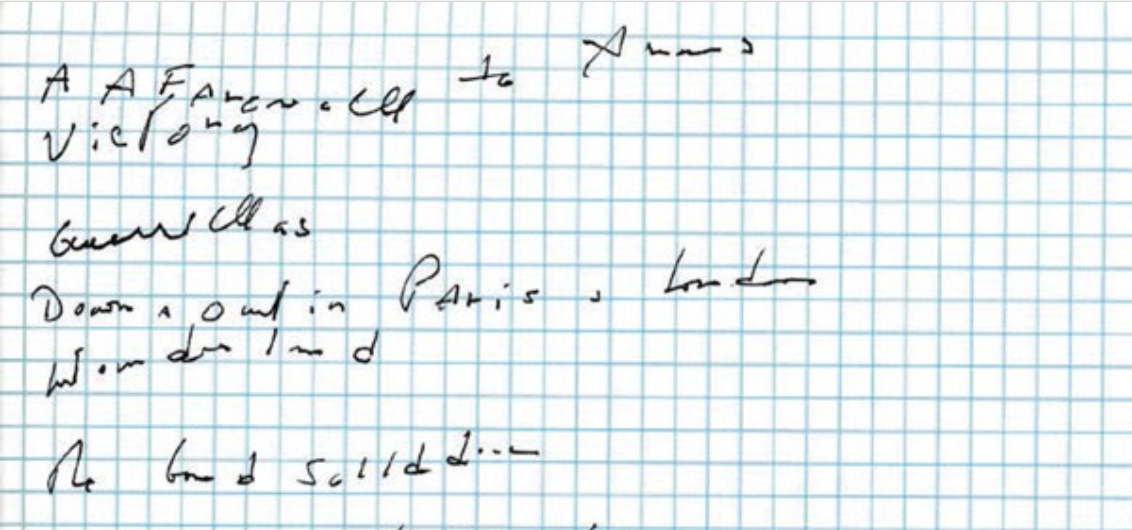 A A Farewell to Arms
Victory
as
Down & Out in Paris & London
Wonderland
The Good Soldier